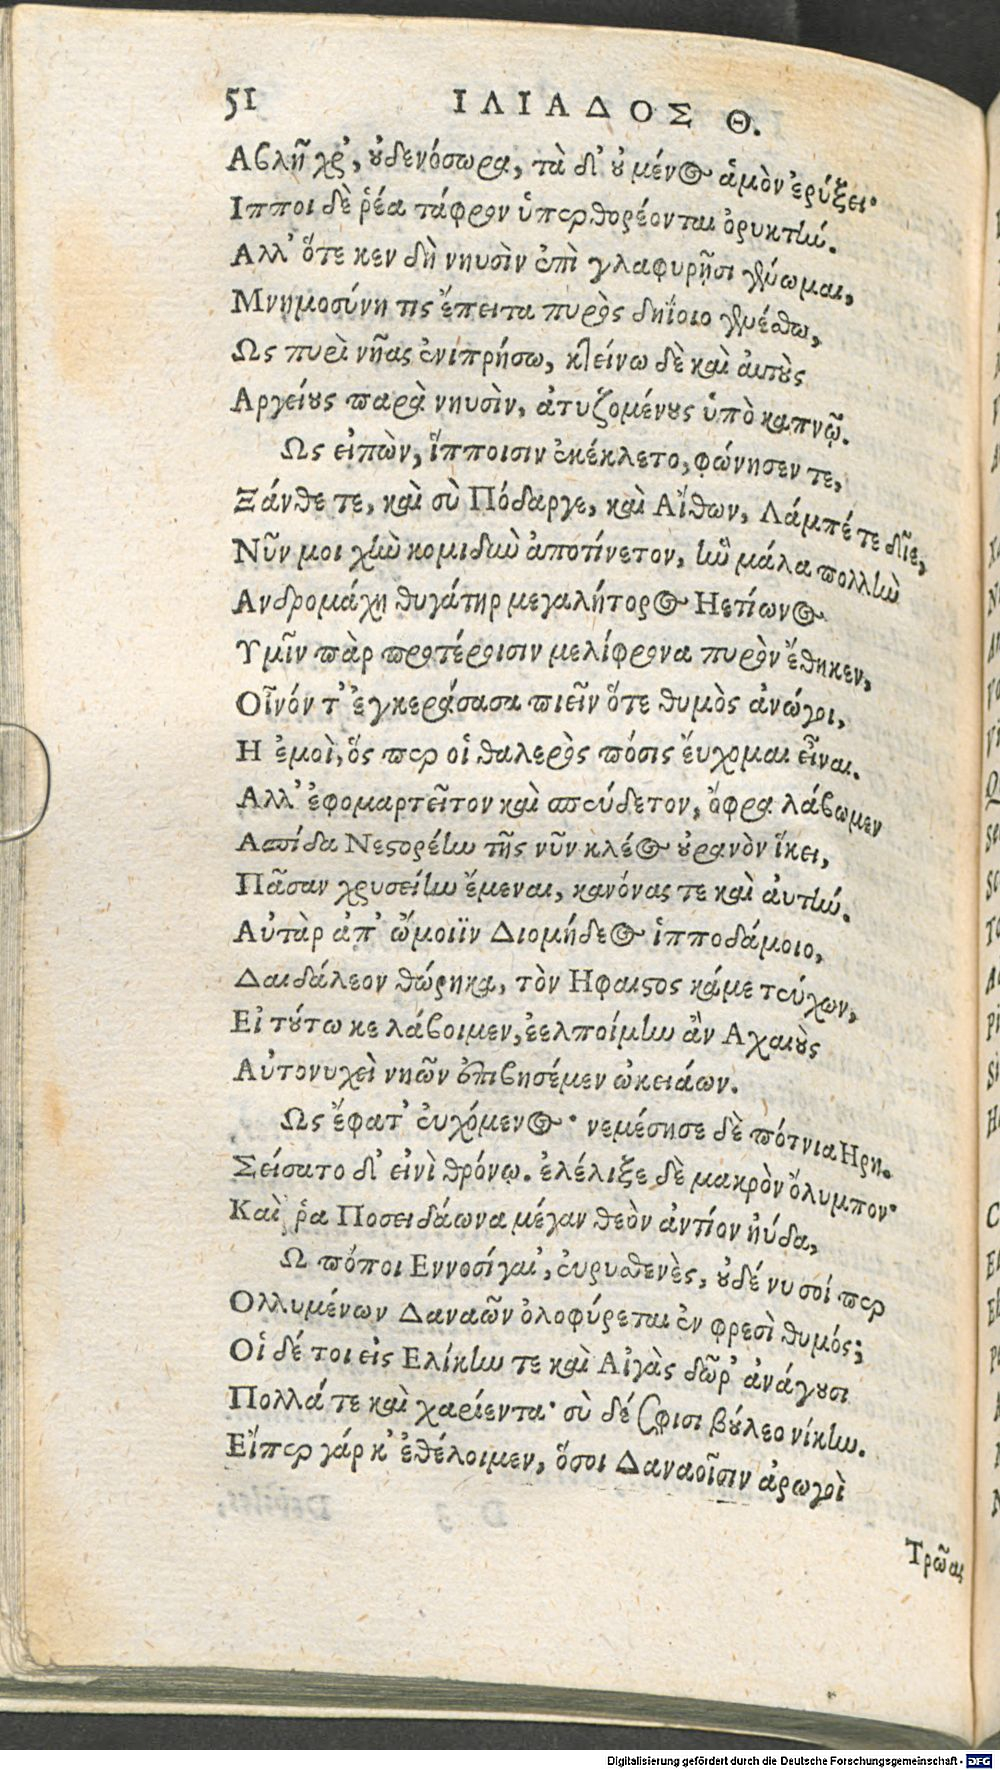 51 ΙΛΙΑΔΟΣ Θ.
Αβλῆχρ', οὐδενόσωρα, τὰ δ' οὐ μένος ἁμὸν ἐρύξει·
Ιπποι δὲ ῥέα τάφρον ὑπερθορέονται ὀρυκτήν.
Αλλ' ὅτε κεν δὴ νηυσὶν ἐπὶ γλαφυρῇσι γένωμαι,
Μνημοσύνη τις ἔπειτα πυρὸς δηΐοιο γενέσθω,
Ως πυρὶ νῆας ἐνιπρήσω, κτείνω δὲ καὶ αὐτοὺς
Αργείους παρὰ νηυσὶν, ἀτυζομένους ὑπὸ καπνῷ.
Ως εἰπὼν, ἵπποισιν ἐκέκλετο, φώνησεν τε,
Ξάνθε τε, καὶ σὺ Πόδαργε, καὶ Αἴθων, Λάμπέ τε δῖε,
Νῦν μοι τὴν κομιδὴν ἀποτίνετον, ἣν μάλα πολλὴν
Ανδρομάχη θυγάτηρ μεγαλήτορος Ηετίωνος
Υμῖν πὰρ προτέροισιν μελίφρονα πυρὸν ἔθηκεν,
Οἶνόν τ' ἐγκεράσασα πιεῖν ὅτε θυμὸς ἀνώγοι,
Η ἐμοὶ, ὅς περ οἱ θαλερὸς πόσις εὔχομαι εἶναι.
Αλλ' ἐφομαρτεῖτον καὶ σπεύδετον, ὄφρα λάβωμεν
Ασπίδα Νεστορέην τῆς νῦν κλέος οὐρανὸν ἵκει,
Πᾶσαν χρυσείην ἔμεναι, κανόνας τε καὶ αὐτήν.
Αὐτὰρ ἀπ' ὤμοιϊν Διομήδεος ἱπποδάμοιο,
Δαιδάλεον θώρηκα, τὸν Ηφαιστος κάμε τεύχων,
Εἰ τούτω κε λάβοιμεν, ἐελποίμην ἂν Αχαιοὺς
Αὐτονυχεὶ νηῶν ἐπιβησέμεν ὠκειάων.
Ως ἔφατ' εὐχόμενος· νεμέσησε δὲ πότνια Ηρη.
Σείσατο δ' εἰνὶ θρόνῳ. ἐλέλιξε δὲ μακρὸν ὄλυμπον·
Καὶ ῥα Ποσειδάωνα μέγαν θεὸν ἀντίον ηὔδα,
Ω πόποι Εννοσίγαι', εὐρυσθενὲς, οὐδέ νυ σοί περ
Ολλυμένων Δαναῶν ὀλοφύρεται ἐν φρεσὶ θυμός;
Οἱ δέ τοι εἰς Ελίκην τε καὶ Αἰγὰς δῶρ' ἀνάγουσι
Πολλά τε καὶ χαρίεντα· σὺ δέ σφισι βούλεο νίκην.
Εἴπερ γάρ κ' ἐθέλοιμεν, ὅσοι Δαναοῖσιν ἀρωγοὶ
Τρῶας
Digitalisierung gefördert durch die Deutsche Forschungsgemeinschaft - DFG